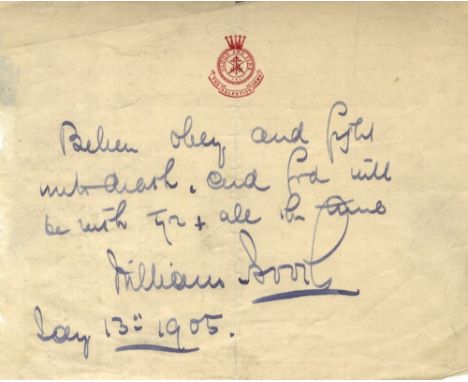 THE SALVATION ARMY
Believe obey and fight
unto death, and God will
be with you + all the time
William Booth
13th 1905.